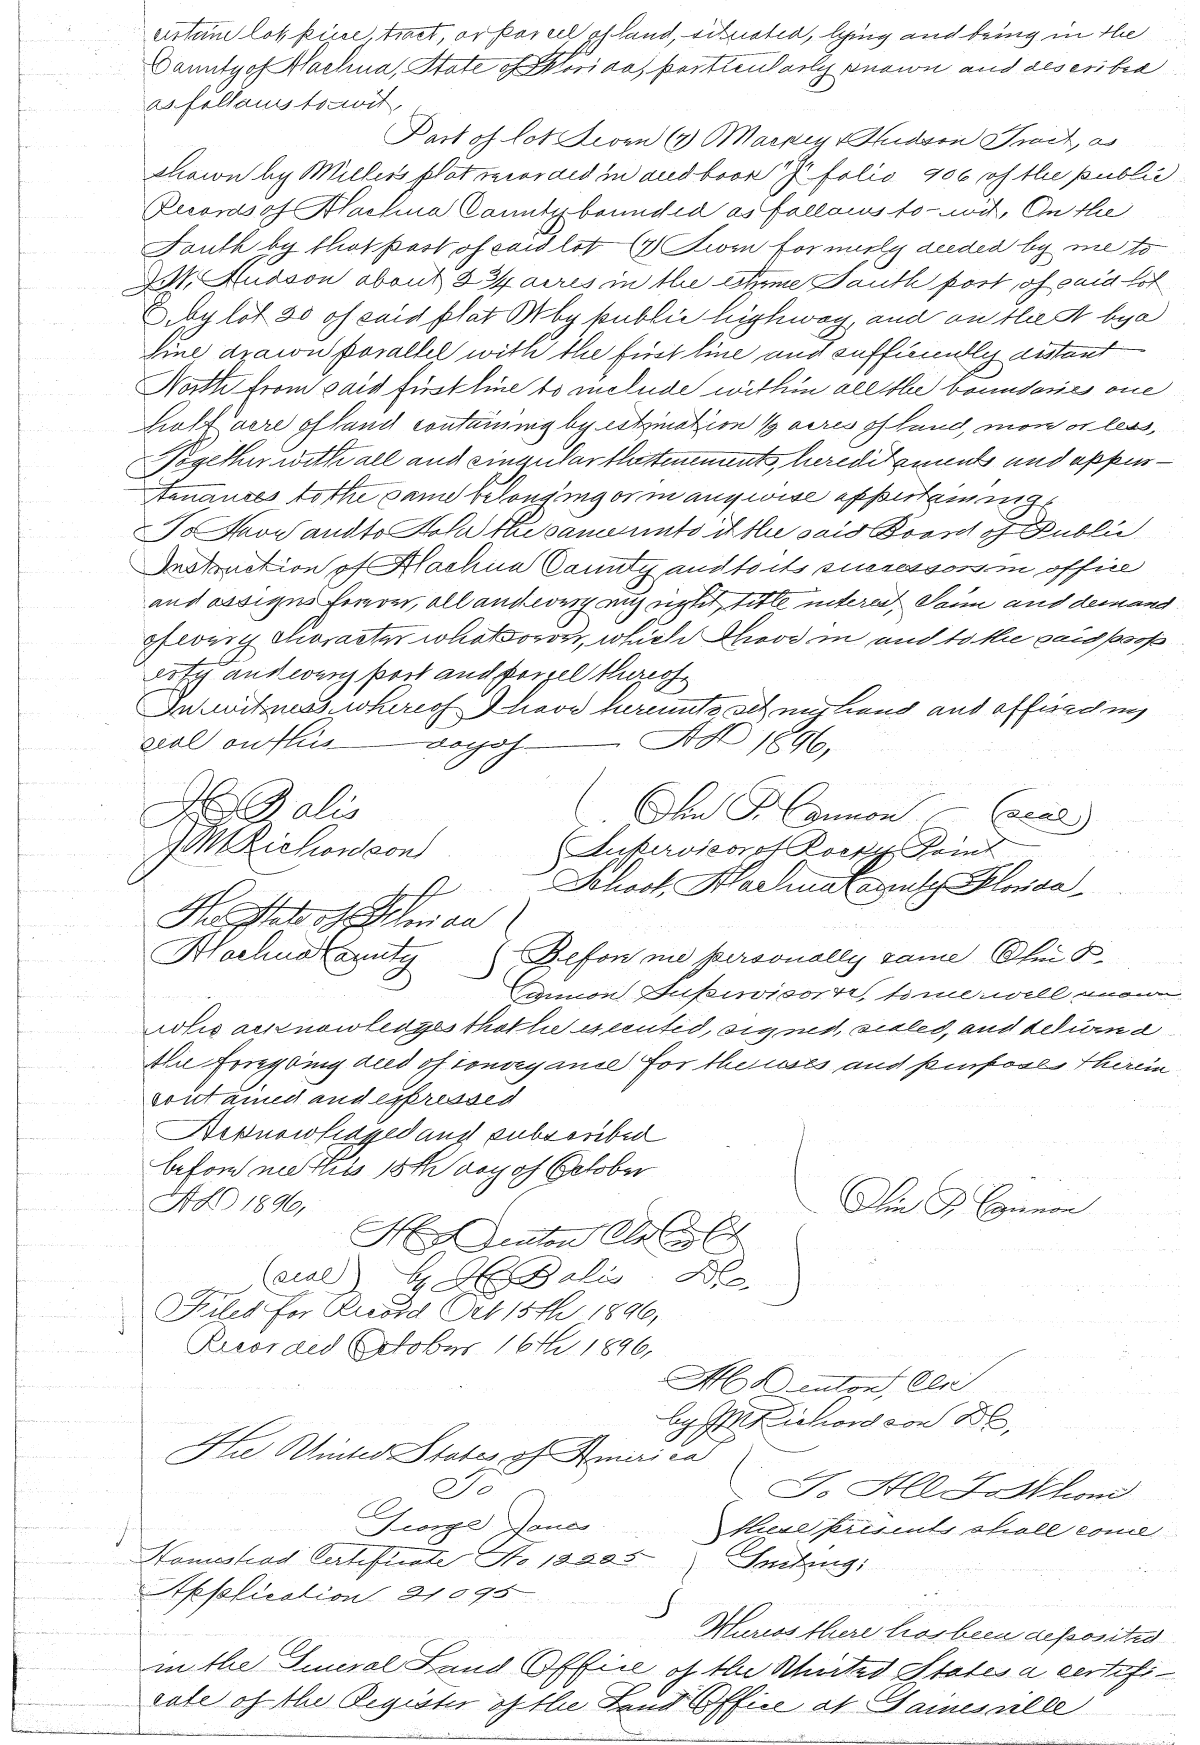 certain lot, piece, tract, or parcel of land, situated, lying and being in the
County of Alachua, State of Florida, particularly known and described
as follows to-wit,
Part of lot Seven (7) Mackey & Hudson Tract, as
shown by Miller's plat recorded in deed book "J" folio 906 of the public
Records of Alachua County bounded as follows to-wit, On the
South by that part of said lot (7) Seven formerly deeded by me to
J.W. Hudson about 2 3/4 acres in the extreme South part of said lot
E. by lot 20 of said plat W by public highway, and on the N by a
line drawn parallel with the first line and sufficiently distant
North from said first line to include within all the boundaries one
half acre of land containing by estimation 1/2 acres of land, more or less,
Together with all and singular the tenements, hereditaments and appur-
tenances to the same belonging or in anywise appertaining,
To Have and to Hold the same unto it the said Board of Public
Instruction of Alachua County and to its successors in office
and assigns forever, all and every my right, title interest, Claim and demand
of every character whatsoever, which I have in and to the said prop
erty and every part and parcel thereof
In witness whereof I have hereunto set my hand and affixed my
seal on this day of AD 1896,
H Balis Olin P. Cannon (seal)
J M Richardson Supervisor of Rocky Point
School, Alachua County Florida,
The State of Florida
Alachua County Before me personally came Olin P.
Cannon Supervisor &c, to me well known
who acknowledges that he executed, signed, sealed, and delivered
the foregoing deed of conveyance for the uses and purposes therein
contained and expressed
Acknowledged and subscribed
before me this 15th day of October
AD 1896, Olin P. Cannon
H C Denton Clk Co Ct
(seal) by H Balis D.C.
Filed for Record Oct 15th 1896,
Recorded October 16th 1896,
H C Denton, Clk
by J M Richardson DC,
The United States of America
To To All To Whom
George Jones these presents shall come
Homestead Certificate No 12225 Greeting:
Application 21095
Whereas there has been deposited
in the General Land Office of the United States a certifi-
cate of the Register of the Land Office at Gainesville